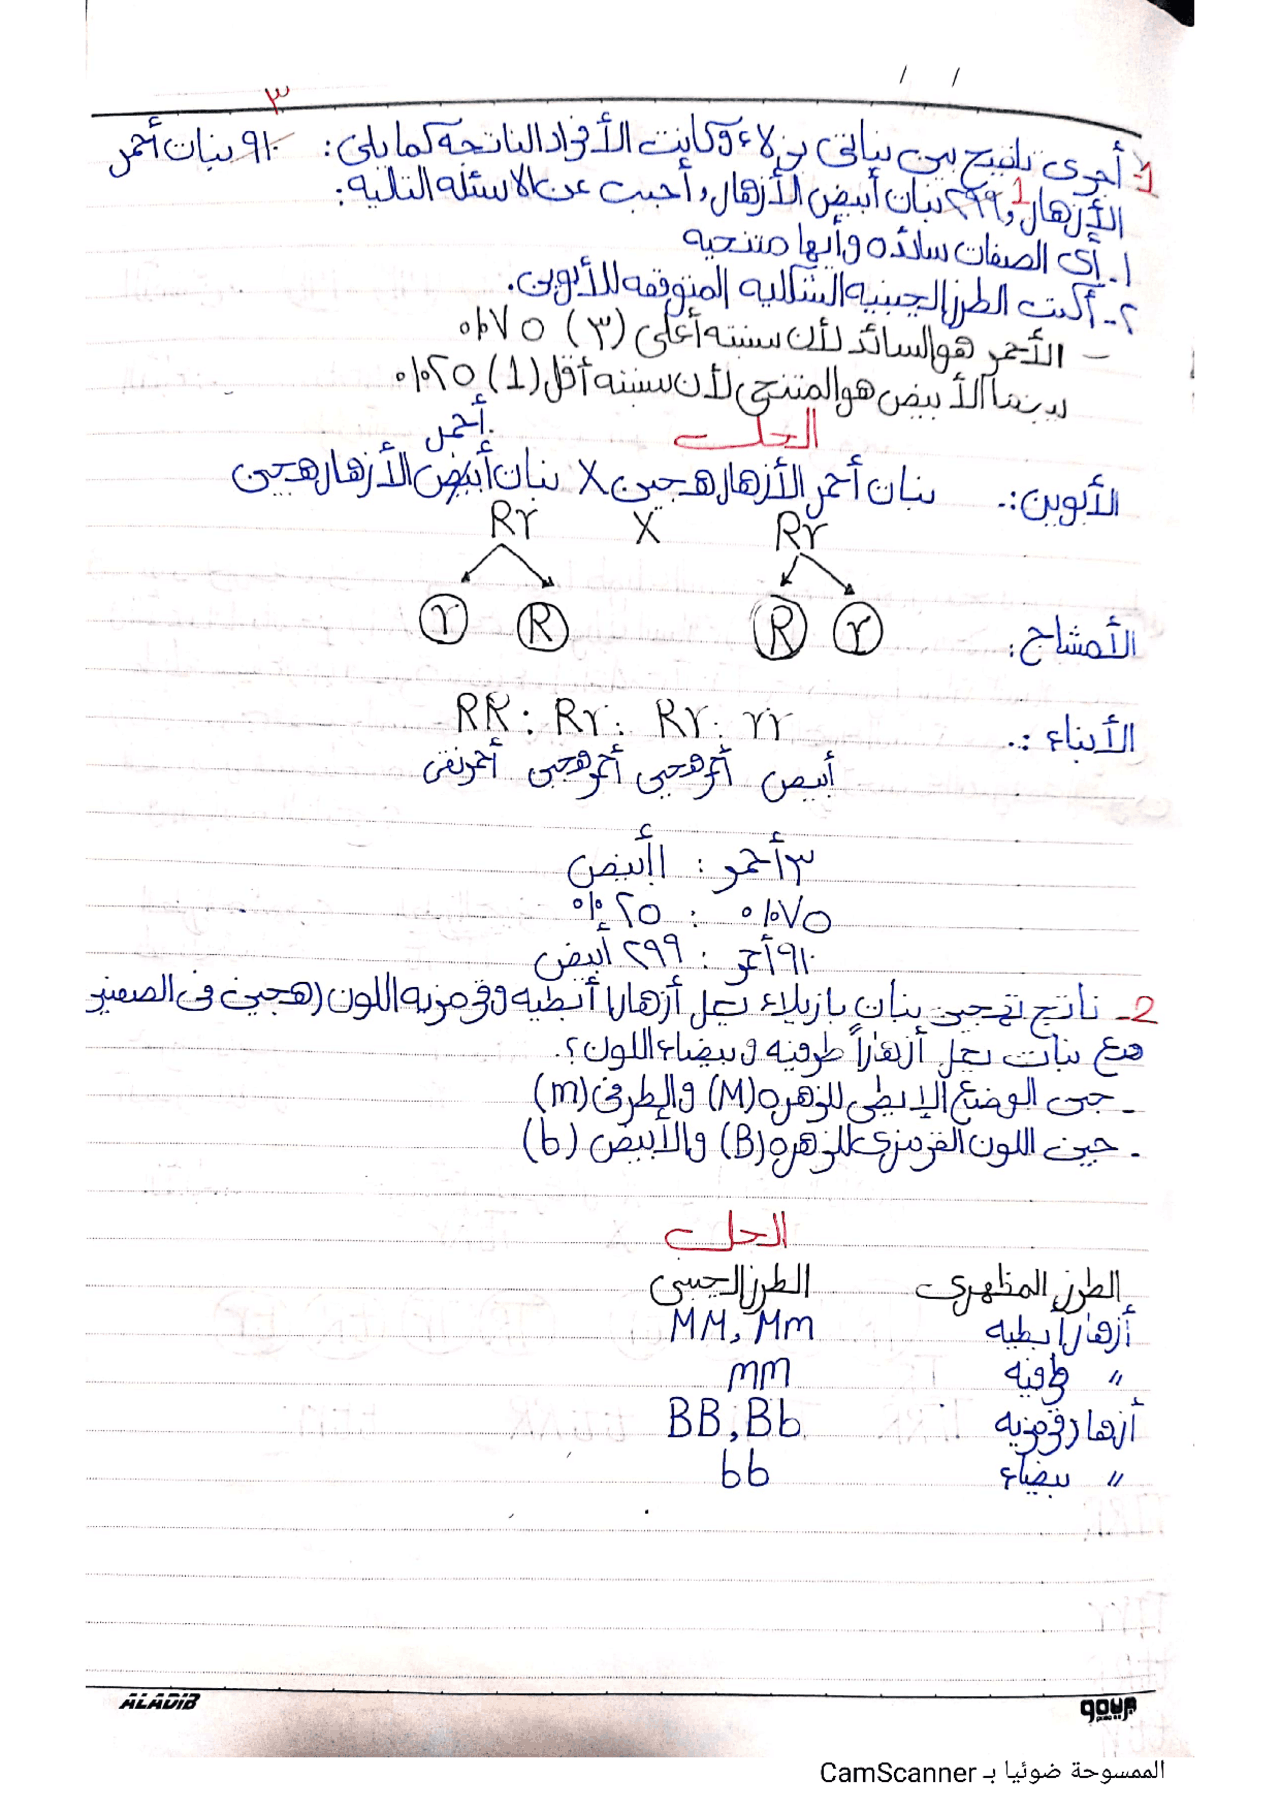 ٣
1- أجرى تلقيح بين نباتي بزلاء وكانت الأفراد الناتجه كما يلي: ٩١٠ نبات أحمر
الأزهار و 1 ٢٩٩ نبات أبيض الأزهار، أجب عن الاسئله التاليه:
١- أي الصفات سائده وأيها متنحيه
٢- أكتب الطرز الجينيه الشكليه المتوقعه للأبوين.
- الأحمر هو السائد لأن نسبته أعلى (٣) ٧٥%
بينما الأبيض هو المتنحي لأن نسبته أقل (1) ٢٥%
الحل
أحمر
الأبوين: نبات أحمر الأزهار هجين X نبات أبيض الأزهار هجين
Rr X Rr
الأمشاج: r R R r
الأبناء: RR : Rr : Rr : rr
أبيض أحمر هجين أحمر هجين أحمر نقي
٣ أحمر : ١ أبيض
٧٥% : ٢٥%
٩١٠ أحمر : ٢٩٩ أبيض
2- ناتج تهجين نبات بازيلاء يحمل أزهارا أبطيه وقرمزيه اللون (هجين في الصفتين
مع نبات يحمل أزهاراً طرفيه وبيضاء اللون؟.
- جين الوضع الإبطي للزهره (M) والطرفي (m)
- جين اللون القرمزي للزهره (B) والأبيض (b)
الحل
الطرز المظهري الطرز الجيني
أزهار أبطيه MM, Mm
〃 طرفيه mm
أزهار قرمزيه BB, Bb
〃 بيضاء bb
ALADIB
goup
الممسوحة ضوئيا بـ CamScanner